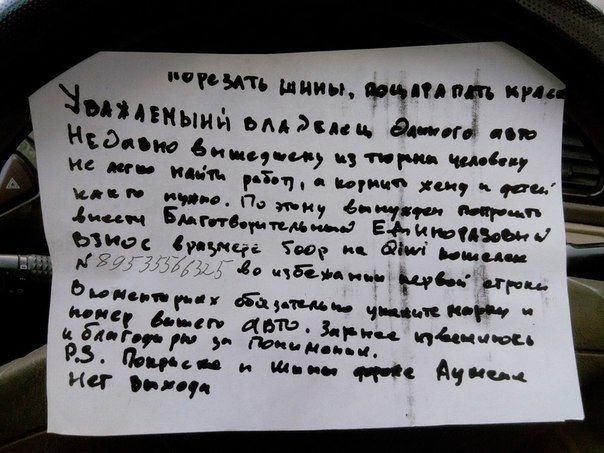 порезать шины, поцарапать краск
Уважаемыий владелец данного авто
Недавно вышедшему из тюрмы человеку
не легко найти работ, а кормить жену и детей
как то нужно. По этому вынужден попросить
внести Благотворительный Единоразовый
взнос в размере 500р на Qiwi кошелек
N 89535556325 во избежании первой строки
В коментариях обязательно укажите марку и
номер вашего авто. Заранее извеняюсь
и благодарю за понимание.
P.S. Покраска и шины дороже Душеник
Нет выхода